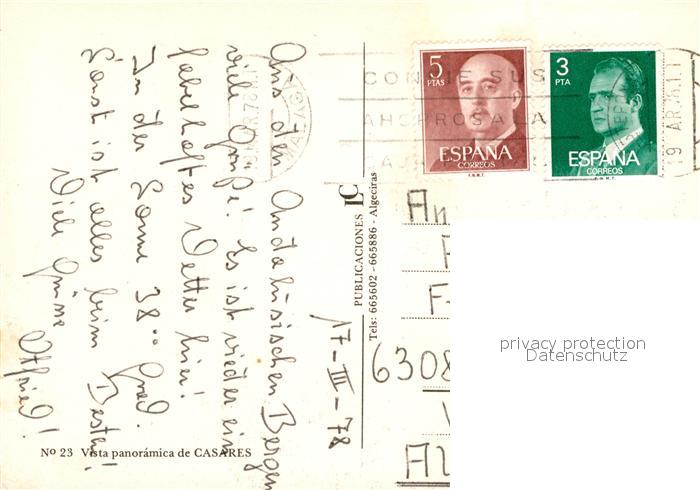 Aus den Andalusischen Bergen
viele Grüße! Es ist wieder ein
fabelhaftes Wetter hier!
In der Sonne 38°° Grad.
Sonst ist alles beim Besten!
Viele Grüsse
Otfried!
17-III-78
Nº 23 Vista panorámica de CASARES
PUBLICACIONES LC
Tels: 665602 - 665886 - Algeciras
5
PTAS
ESPAÑA
CORREOS
F.N.M.T.
3
PTA
ESPAÑA
CORREOS
F.N.M.T.
CON
SUS
AHORROS A LA
An
F
F
6308
Al
privacy protection
Datenschutz